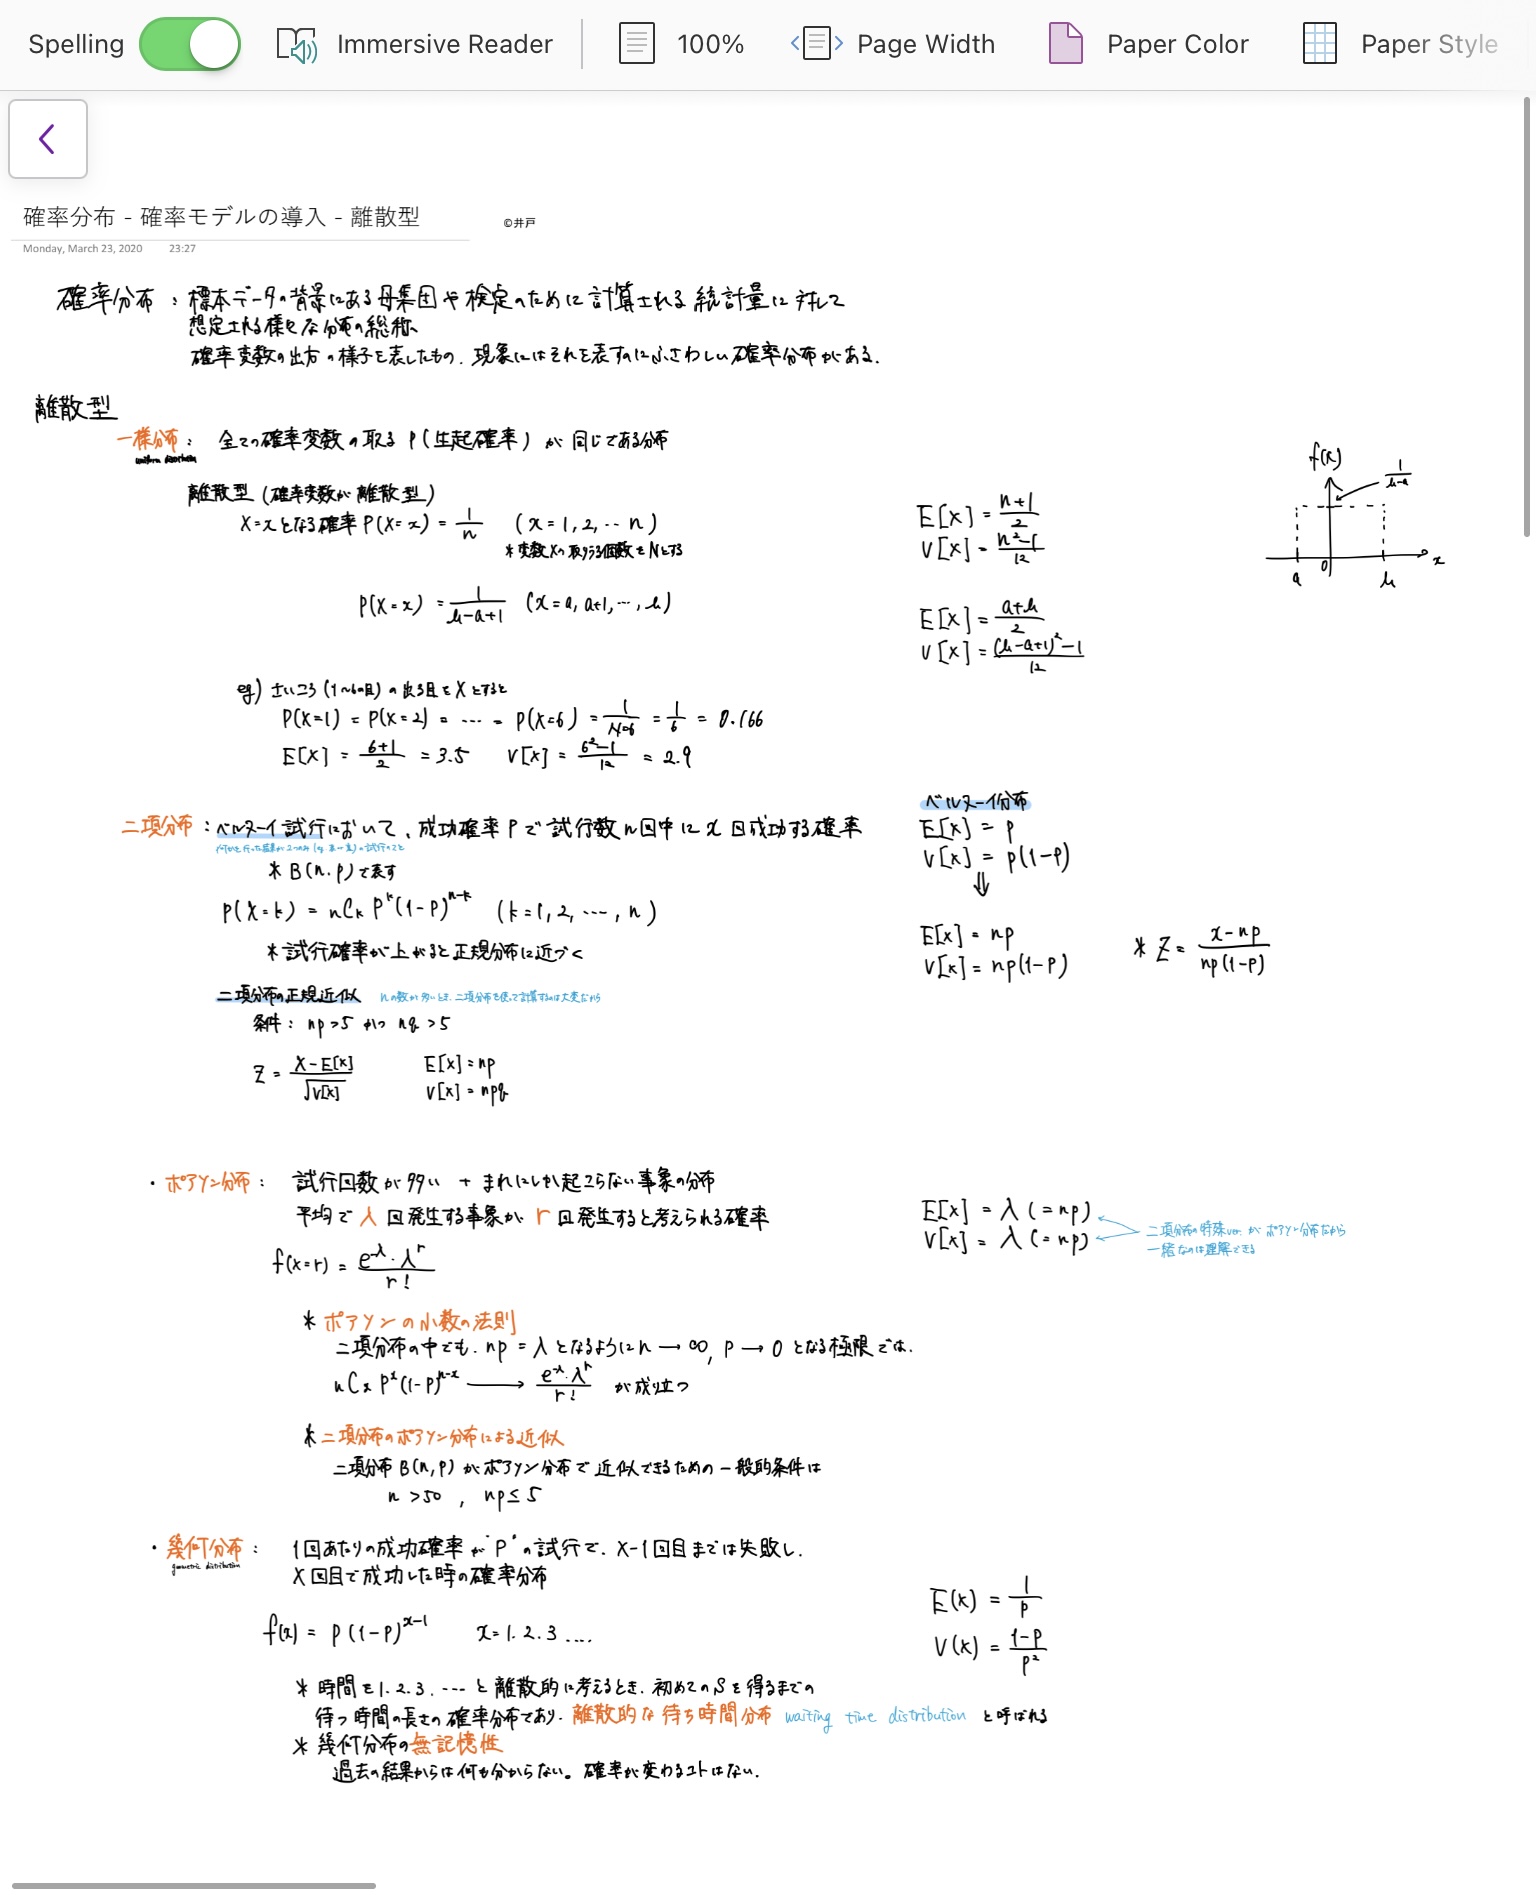 Spelling Immersive Reader 100% Page Width Paper Color Paper Style
確率分布 - 確率モデルの導入 - 離散型 ©井戸
Monday, March 23, 2020 23:27
確率分布 : 標本データの背景にある母集団や検定のために計算される統計量に対して
想定される様々な分布の総称、
確率変数の出方の様子を表したもの. 現象にはそれを表すのにふさわしい確率分布がある.
離散型
一様分布 : 全ての確率変数の取る P(生起確率) が同じである分布
uniform distribution
f(x)
1/(b-a)
a 0 b x
離散型 (確率変数が離散型)
X=xとなる確率 P(X=x) = 1/n (x=1, 2, … n)
* 変数Xの取りうる個数をNとする
E[X] = (n+1)/2
V[X] = (n²-1)/12
P(X=x) = 1/(b-a+1) (x=a, a+1, …, b)
E[X] = (a+b)/2
V[X] = ((b-a+1)²-1)/12
eg) さいころ (1~6の目) の出る目をXとすると
P(X=1) = P(X=2) = … = P(X=6) = 1/N=6 = 1/6 = 0.166
E[X] = (6+1)/2 = 3.5 V[X] = (6²-1)/12 = 2.9
二項分布 : ベルヌーイ試行において、成功確率Pで試行数n回中にx回成功する確率
何かを行った結果が2つのみ (eg. 表-裏) の試行のこと
* B(n.p)で表す
P(X=k) = nCk P^k (1-P)^(n-k) (k=1, 2, …, n)
* 試行確率が上がると正規分布に近づく
ベルヌーイ分布
E[X] = p
V[X] = p(1-p)
⇓
E[X] = np
V[X] = np(1-p)
* Z = (x-np)/(np(1-p))
二項分布の正規近似 nの数が多いとき、二項分布を使って計算するのは大変だから
条件 : np>5 かつ nq>5
Z = (X-E[X])/√V[X]
E[X] = np
V[X] = npq
・ポアソン分布 : 試行回数が多い + まれにしか起こらない事象の分布
平均でλ回発生する事象がr回発生すると考えられる確率
f(x=r) = (e^-λ・λ^r)/r!
E[X] = λ (=np)
V[X] = λ (=np)
二項分布の特殊ver. がポアソン分布だから
一緒なのは理解できる
* ポアソンの小数の法則
二項分布の中でも. np=λとなるように n→∞, P→0 となる極限では.
nCx P^x (1-P)^(n-x) → (e^-λ・λ^r)/r! が成り立つ
* 二項分布のポアソン分布による近似
二項分布 B(n,p) がポアソン分布で近似できるための一般的条件は
n >50 , np≤5
・幾何分布 : 1回あたりの成功確率が"P"の試行で. X-1回目までは失敗し.
geometric distribution
X回目で成功した時の確率分布
f(x) = P(1-P)^(x-1) x=1.2.3 ....
E(x) = 1/p
V(x) = (1-p)/p²
* 時間を1.2.3.…と離散的に考えるとき. 初めてのSを得るまでの
待つ時間の長さの確率分布であり. 離散的な待ち時間分布 waiting time distribution と呼ばれる
* 幾何分布の無記憶性
過去の結果からは何も分からない。確率が変わるコトはない.